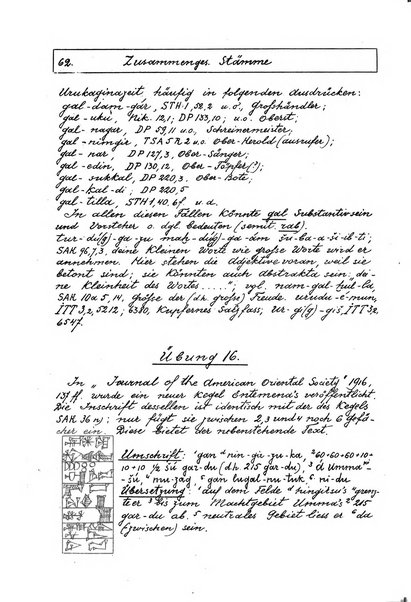 62. Zusammenges. Stämme
Urukaginazeit, häufig in folgenden Ausdrücken:
gal-dam-gár, STH 1, 52,2 u.ö., Großhändler;
gal-uku, Nik. 12,1; DP 133,10; u.ö. Oberst,
gal-nagar, DP 59,11 u.ö., Schreinermeister,
gal-nimgir, TSA 5 R 2 u.ö. Ober-Herold (Ausrufer);
gal-nar, DP 127,3, Ober-Sänger;
gal-edin, DP 130,12, Ober-Töpfer(?);
gal-sukkal, DP 220,3. Ober-Bote,
gal-kal-di; DP 220,5
gal-tilla, STH 1, 40,6f u.d.
In allen diesen Fällen könnte gal Substantiv sein
und Vorsteher o. dgl. bedeuten (semit. rab).
tur-du(g)-ga-zu mah-du(g)-ga-ám šu-ba-a-ši-ib-ti;
SAK 96,7,3, deine kleinen Worte wie große Worte wird er
annehmen. Hier stehen die Adjektive voran, weil sie
betont sind; sie könnten auch Abstrakta sein: „dei-
ne Kleinheit des Wortes.....“; vgl. nam-gal-hul-la,
SAK 10 a 5, 14, Größe der (d.h. große) Freude. urudu-e-mun,
ITT 3,2, 5212; 6310, Kupfernes Salzfass; ur-gi(g)-gis, ITT 3,2,
6547.
Übung 16.
In „Journal of the American Oriental Society“ 1916,
137 ff. wurde ein neuer Kegel Entemena's veröffentlicht.
Die Inschrift desselben ist identisch mit der des Kegels
SAK 36 n); nur fügt sie zwischen 2, 3 und 4 noch 6 Fä-
cher ein. Diese bietet der nebenstehende Text.
Umschrift: gan nin-gir-zu-ka, 60+60+60+10+
10+10 ½ šú gar-du (d.h. 215 gar-du), d Umma-
šú, nu-zag, gan lugal-nu-tuk ni-du
Übersetzung: auf dem Felde Ningirsu's gren-
zte er bis zum Machtgebiet Umma's 215
gar-du ab. neutrales Gebiet liess er da
(zwischen) sein.